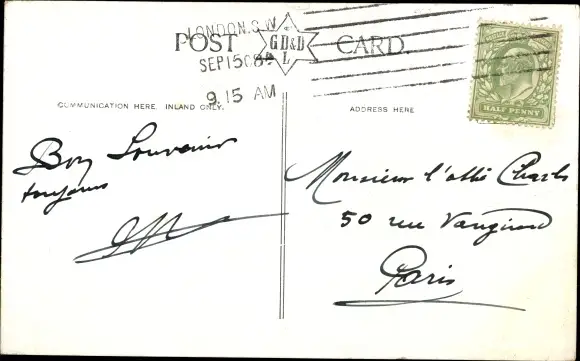 LONDON. S.W
POST CARD.
G D & D
L
SEP 15 08
9.15 AM
HALF PENNY
COMMUNICATION HERE, INLAND ONLY.
ADDRESS HERE
Bon Souvenir
toujours
Monsieur l'abbé Charles
50 rue Vaugirard
Paris